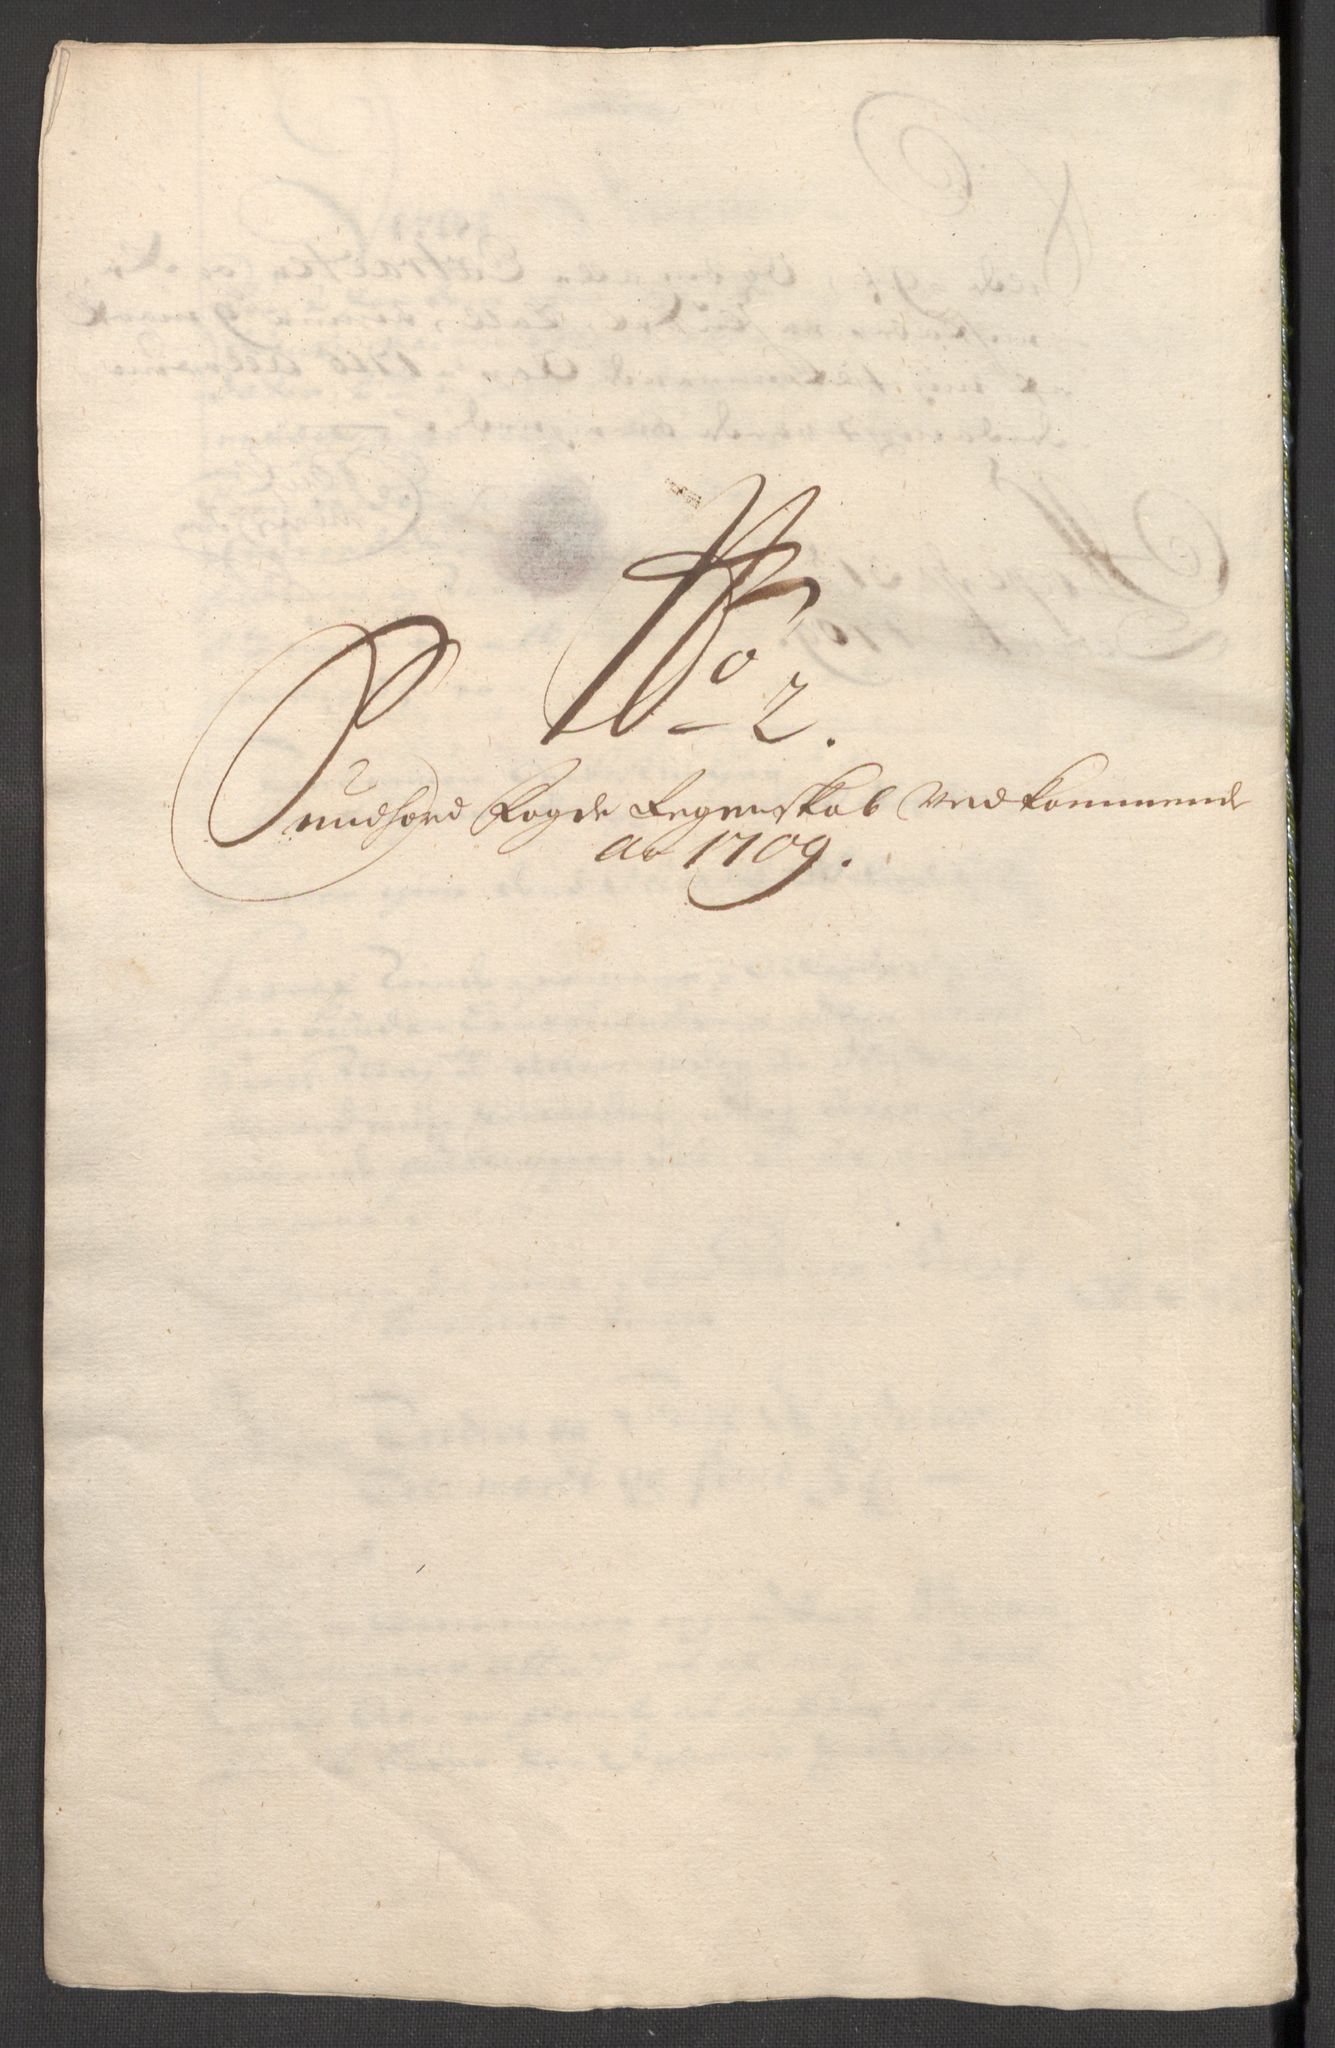 No 2.
Sundhord Fogde Regenskab Vedkommende
ao 1709.